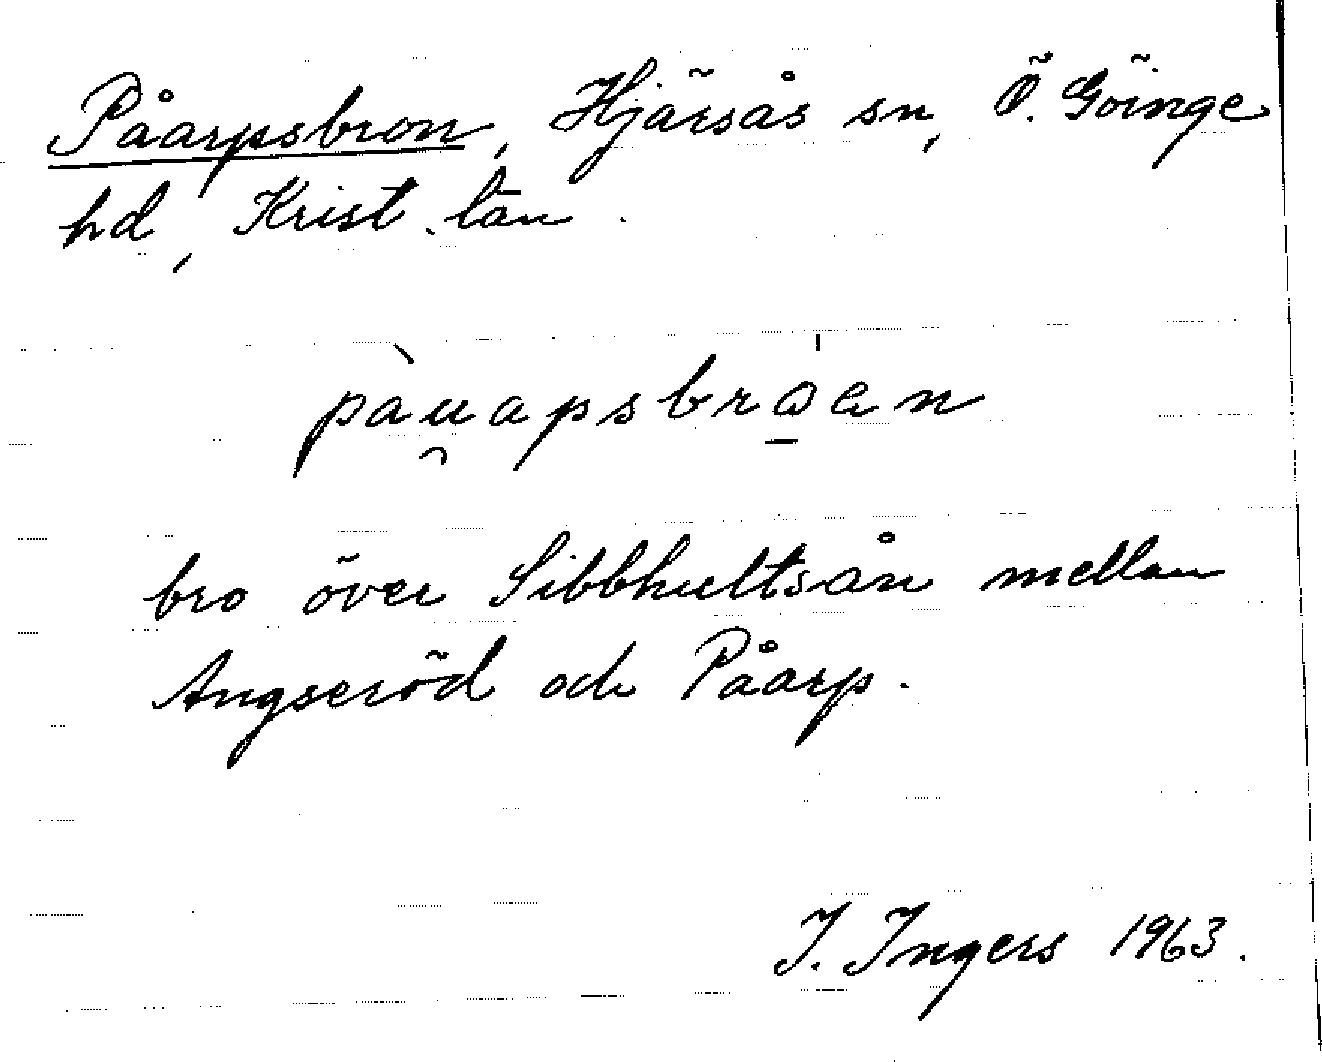 Påarpsbron, Hjärsås sn, Ö. Göinge
hd, Krist. län.
pàu̯apsbrɷ̲́en
bro över Sibbhultsån mellan
Angseröd och Påarp.
I. Ingers 1963.